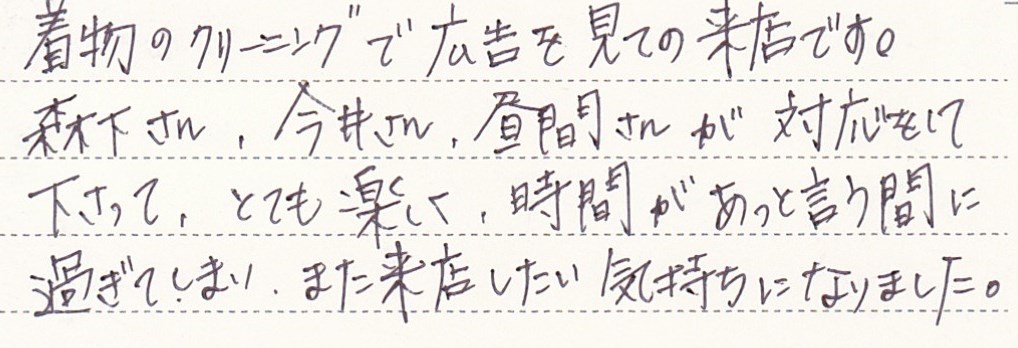 着物のクリーニングで広告を見ての来店です。
森下さん、今井さん、昼間さんが対応をして
下さって、とても楽しく、時間があっと言う間に
過ぎてしまい、また来店したい気持ちになりました。